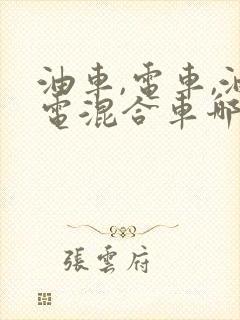 油車,電車,油
電混合車哪
張雲府